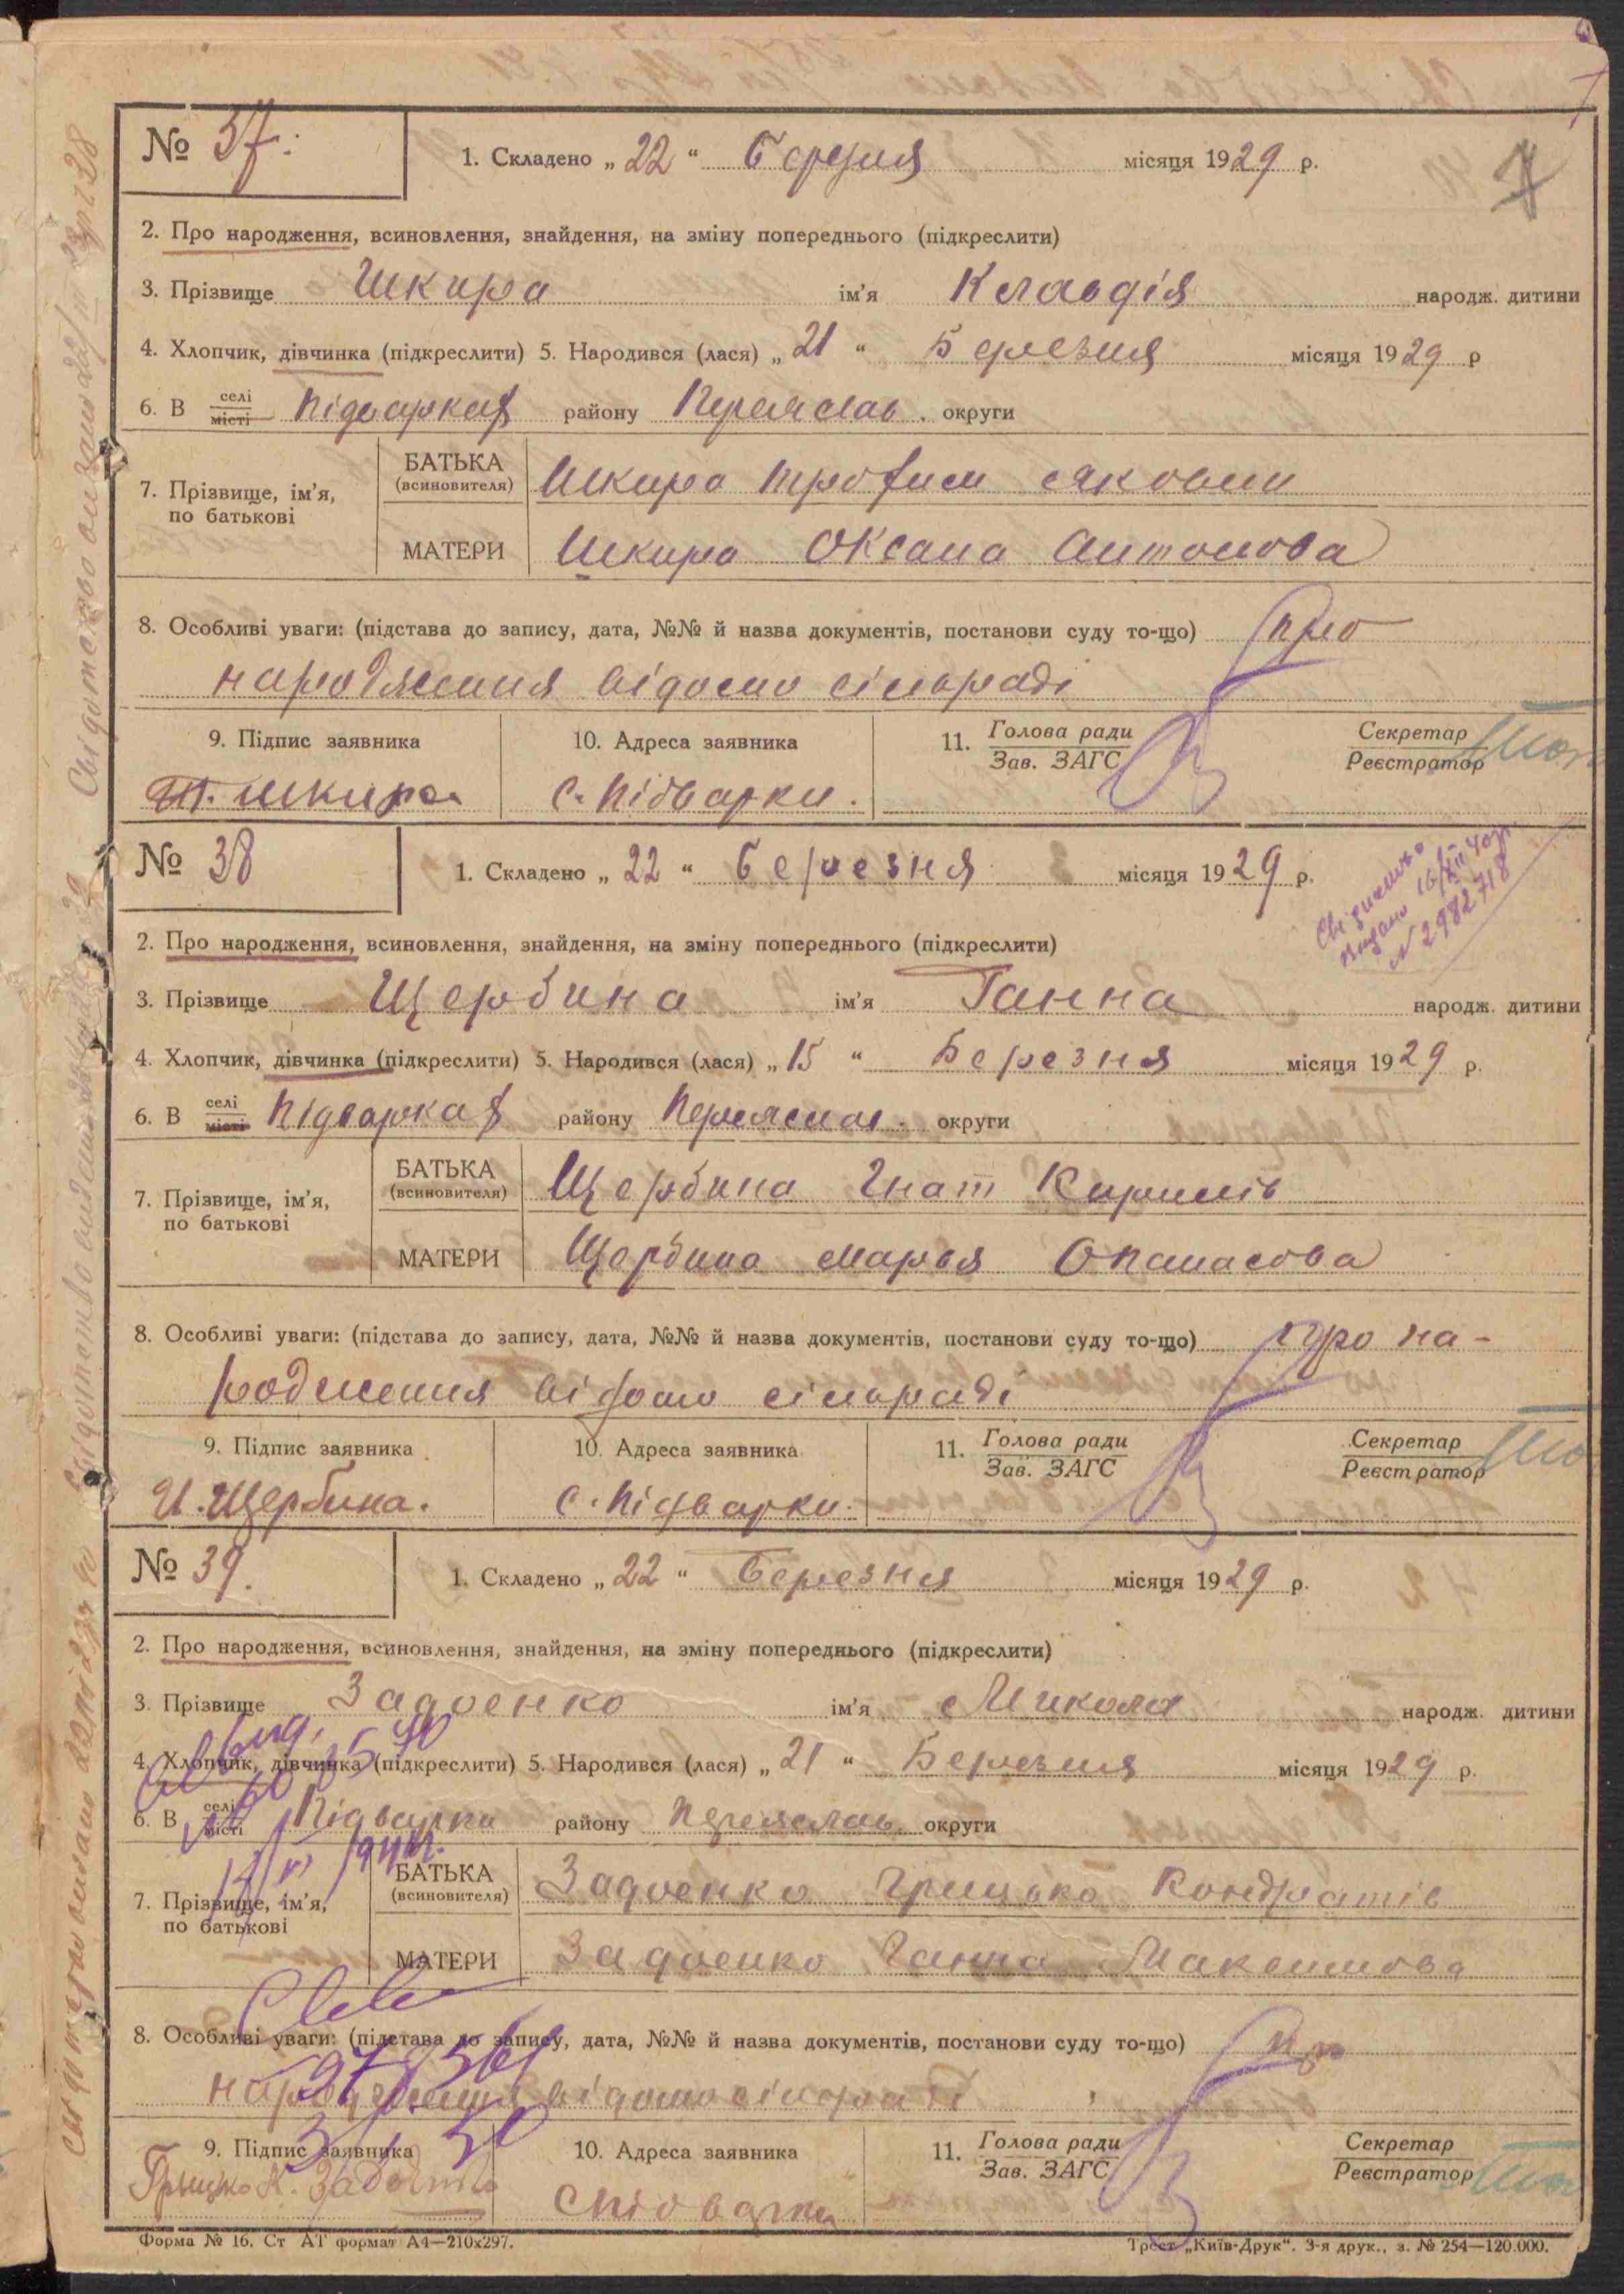 7
№ 37.
1. Складено „ 22 “ березня місяця 1929 р.
2. Про народження, всиновлення, знайдення, на зміну попереднього (підкреслити)
3. Прізвище Шкира ім'я Клавдія народж. дитини
4. Хлопчик, дівчинка (підкреслити) 5. Народився (лася) „ 21 “ Березня місяця 1929 р
6. В селі місті Підварках району Переяслав. округи
7. Прізвище, ім'я, по батькові
БАТЬКА (всиновителя) Шкира Трофим Якович
МАТЕРИ Шкира Оксана Антонова
8. Особливі уваги: (підстава до запису, дата, №№ й назва документів, постанови суду то-що) про
народження відомо сільраді
9. Підпис заявника 10. Адреса заявника 11. Голова ради Зав. ЗАГС Секретар Реєстратор
Т. Шкира с. Підварки.
№ 38
1. Складено „ 22 “ березня місяця 1929 р.
Свідоцтво
видано 16/XII 40р.
№ 2982718
2. Про народження, всиновлення, знайдення, на зміну попереднього (підкреслити)
3. Прізвище Щербина ім'я Ганна народж. дитини
4. Хлопчик, дівчинка (підкреслити) 5. Народився (лася) „ 15 “ Березня місяця 1929 р.
6. В селі місті Підварках району Переяслав. округи
7. Прізвище, ім'я, по батькові
БАТЬКА (всиновителя) Щербина Гнат Кирилів
МАТЕРИ Щербина Марья Опанасова
8. Особливі уваги: (підстава до запису, дата, №№ й назва документів, постанови суду то-що) про на-
родження відомо сільраді
9. Підпис заявника 10. Адреса заявника 11. Голова ради Зав. ЗАГС Секретар Реєстратор
И. Щербина. с. Підварки.
№ 39.
1. Складено „ 22 “ Березня місяця 1929 р.
2. Про народження, всиновлення, знайдення, на зміну попереднього (підкреслити)
3. Прізвище Задоенко ім'я Микола народж. дитини
4. Хлопчик, дівчинка (підкреслити) 5. Народився (лася) „ 21 “ Березня місяця 1929 р.
6. В селі місті Підварки району Переяслав. округи
7. Прізвище, ім'я, по батькові
БАТЬКА (всиновителя) Задоенко Грицько Кондратів
МАТЕРИ Задоенко Ганна Максимова
8. Особливі уваги: (підстава до запису, дата, №№ й назва документів, постанови суду то-що) про
народження відомо сільраді
9. Підпис заявника 10. Адреса заявника 11. Голова ради Зав. ЗАГС Секретар Реєстратор
Грыцко К. Задоенко с Підварки
Форма № 16. Ст АТ формат А4—210х297.
Трест „Київ-Друк“. 3-я друк., з. № 254—120.000.